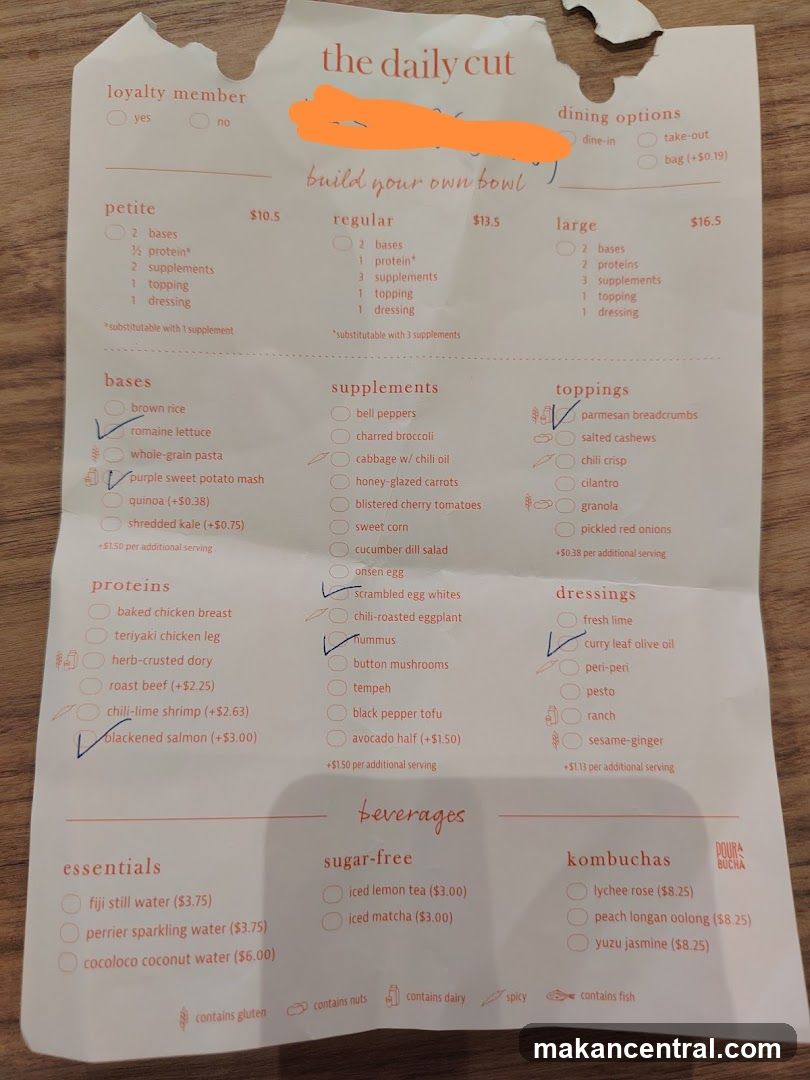 the daily cut
loyalty member
yes
no
dining options
dine-in
take-out
bag (+$0.19)
build your own bowl
petite $10.5
2 bases
½ protein*
2 supplements
1 topping
1 dressing
*substitutable with 1 supplement
regular $13.5
2 bases
1 protein*
3 supplements
1 topping
1 dressing
*substitutable with 3 supplements
large $16.5
2 bases
2 proteins
3 supplements
1 topping
1 dressing
bases
brown rice
romaine lettuce
whole-grain pasta
purple sweet potato mash
quinoa (+$0.38)
shredded kale (+$0.75)
+$1.50 per additional serving
proteins
baked chicken breast
teriyaki chicken leg
herb-crusted dory
roast beef (+$2.25)
chili-lime shrimp (+$2.63)
blackened salmon (+$3.00)
supplements
bell peppers
charred broccoli
cabbage w/ chili oil
honey-glazed carrots
blistered cherry tomatoes
sweet corn
cucumber dill salad
onsen egg
scrambled egg whites
chili-roasted eggplant
hummus
button mushrooms
tempeh
black pepper tofu
avocado half (+$1.50)
+$1.50 per additional serving
toppings
parmesan breadcrumbs
salted cashews
chili crisp
cilantro
granola
pickled red onions
+$0.38 per additional serving
dressings
fresh lime
curry leaf olive oil
peri-peri
pesto
ranch
sesame-ginger
+$1.13 per additional serving
beverages
essentials
fiji still water ($3.75)
perrier sparkling water ($3.75)
cocoloco coconut water ($6.00)
sugar-free
iced lemon tea ($3.00)
iced matcha ($3.00)
kombuchas
POUR
BUCHA
lychee rose ($8.25)
peach longan oolong ($8.25)
yuzu jasmine ($8.25)
contains gluten
contains nuts
contains dairy
spicy
contains fish
makancentral.com